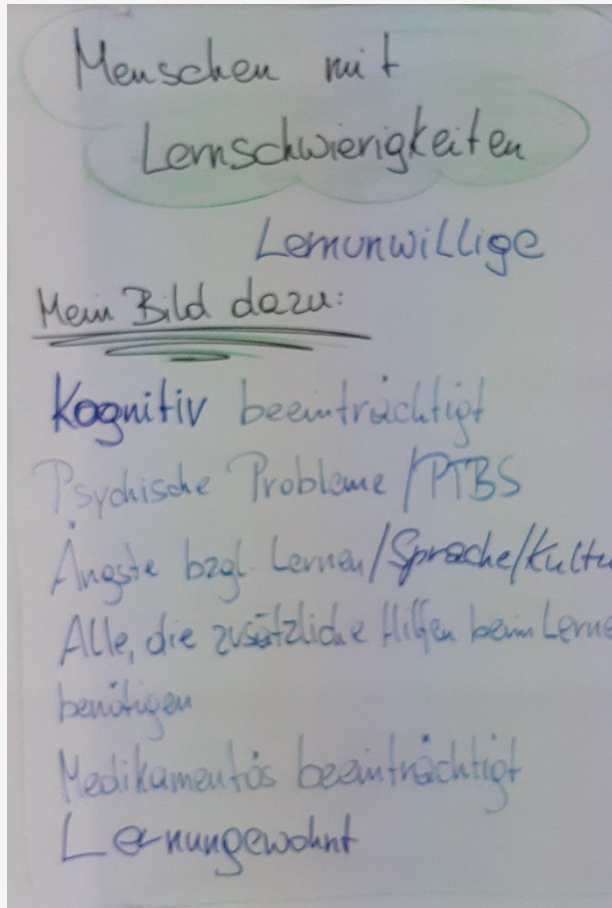 Menschen mit
Lernschwierigkeiten
Lernunwillige
Mein Bild dazu:
Kognitiv beeinträchtigt
Psychische Probleme/PTBS
Ängste bzgl. Lernen/Sprache/Kultu
Alle, die zusätzliche Hilfen beim Lerne
benötigen
Medikamentös beeinträchtigt
Lernungewohnt